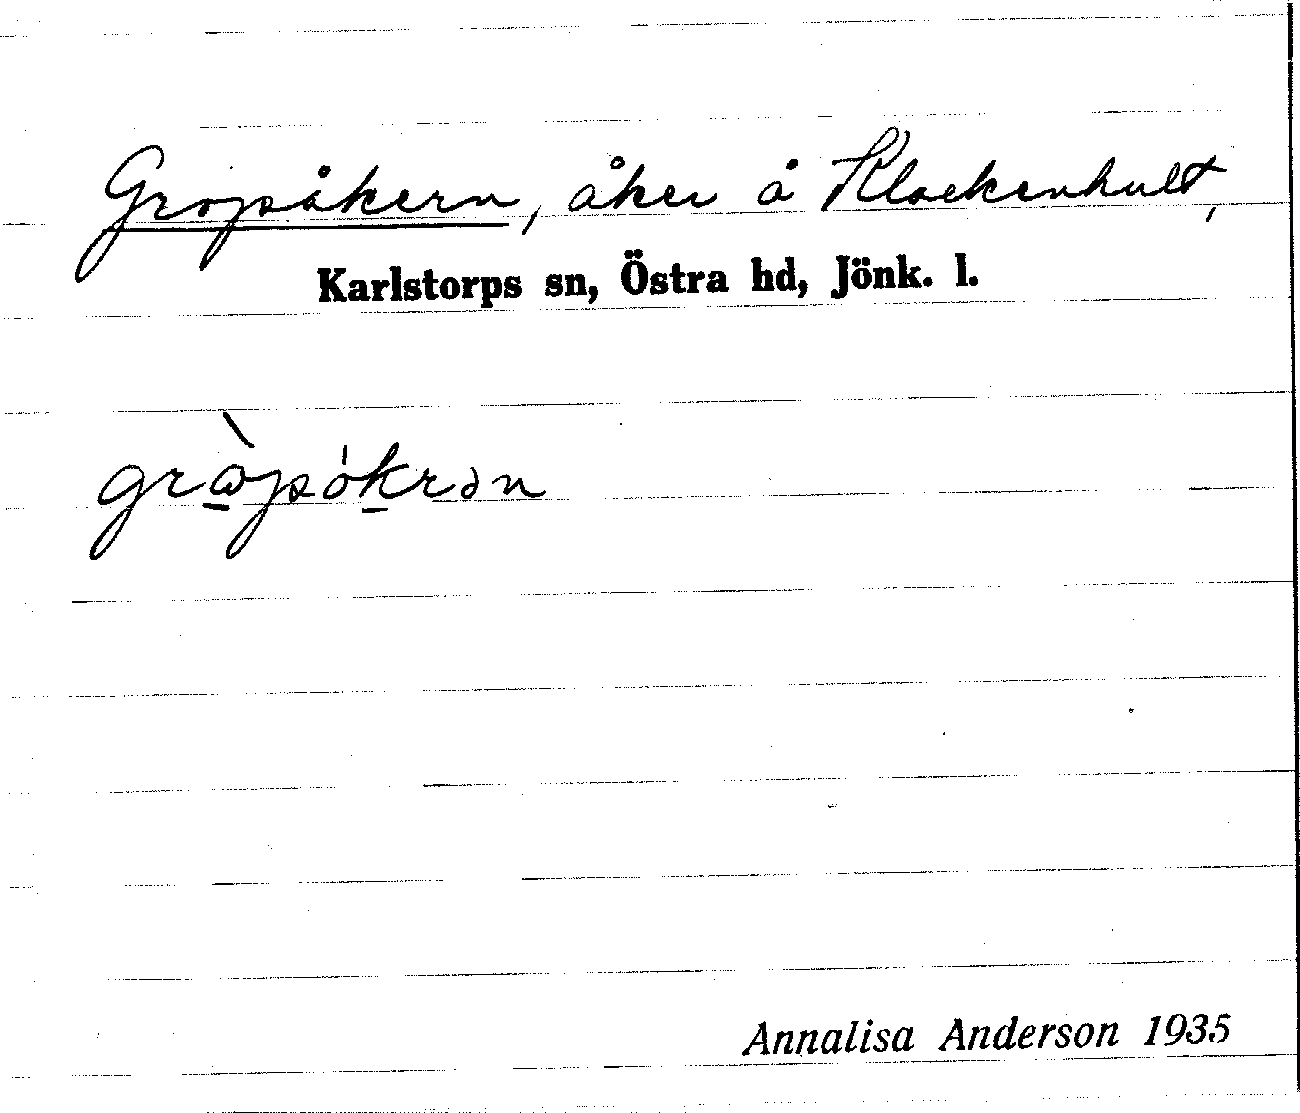 Gropåkern, åker å Klockenhult,
Karlstorps sn, Östra hd, Jönk. l.
grὼpókrən
Annalisa Anderson 1935